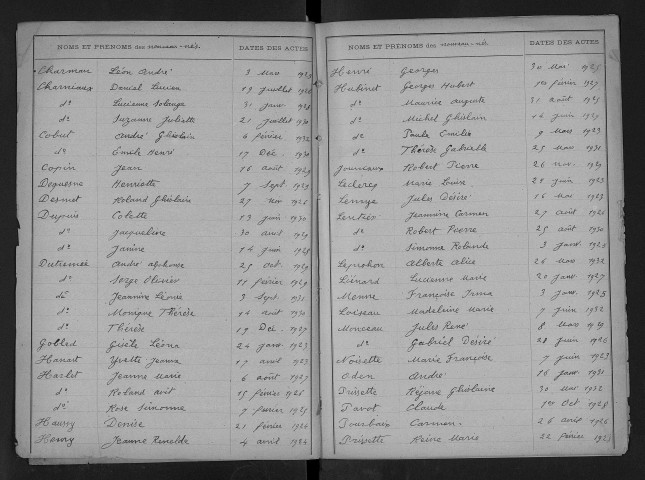 NOMS ET PRÉNOMS des nouveau-nés. DATES DES ACTES
Charman Léon André 3 Mars 1925
Charneaux Daniel Lucien 19 Juillet
d° Lucienne Solange 31 Janv
d° Suzanne Juliette 21 Juillet 1930
Cobut André Ghislain 6 février 1932
d° Emile Henri 17 Déc. 1930
Copin Jean 16 août 1929
Dequesne Henriette 7 Sept
Desmet Roland Ghislain 27 Nov 1926
Dupuis Colette 13 juin 1930
d° Jacqueline 30 avril 1929
d° Janine 14 juin 1928
André Alphonse 25 Oct 1929
d° Serge Olivier 11 février 1929
de Jeannine Léonie 3 Sept 1931
d° Monique Thérèse 14 août 1930
d° Thérèse 19 Déc. 1927
Gobled Gisèle Léona 24 janv 1923
Hanart Yvette Jeanne 17 avril 1923
Harlet Jeanne Marie 6 août 1927
d° Roland 15 février 1926
d° Rose Simonne 7 février
Haussy Denise 21 février 1926
Henry Jeanne Renelde 4 avril 1924
NOMS ET PRÉNOMS des nouveau-nés. DATES DES ACTES
Henri Georges 30 Mai 1925
Hubinet Georges Hubert 1er février 1927
d° Maurice Auguste 31 août 1925
d° Michel Ghislain 16 juin
d° Paula Emilia 9 Mars 1923
d° Thérèse Gabrielle 25 Mars 1931
Jouniaux Robert Pierre 26 nov. 1929
Leclercq Marie Louise 28 juin 1923
Jules Désiré 16 Mai 1923
Jeannine Carmen 27 août 1928
d° Robert Pierre 25 août 1930
d° Simonne Rolande 3 janv
Alberte Alice 26 Mars 1932
Liénard Lucienne Marie 20 janv 1927
Menne Françoise Irma 3 janv. 1925
Loiseau Madeleine Marie 7 juin 1932
Monceau Jules René 8 Mars 1929
d° Gabriel Désiré 28 juin 1926
Noisette Marie Françoise 7 juin 1923
Oden André 16 janv 1931
Ghislaine 30 Mai 1932
Pavot Claude 1er Oct 1928
Pourbaix Carmen 26 avril 1926
Prisette Reine Marie 22 février